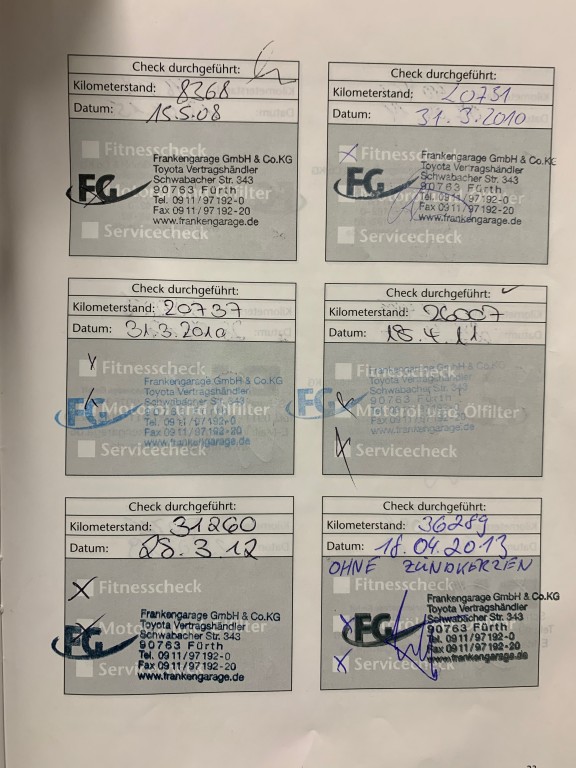 Check durchgeführt:
Kilometerstand: 8368
Datum: 15.5.08
Fitnesscheck
Motoröl und Ölfilter
Servicecheck
FG
Frankengarage GmbH & Co.KG
Toyota Vertragshändler
Schwabacher Str. 343
90763 Fürth
Tel. 0911/97192-0
Fax 0911/97192-20
www.frankengarage.de
Check durchgeführt:
Kilometerstand: 20731
Datum: 31.3.2010
Fitnesscheck
Servicecheck
FG
Frankengarage GmbH & Co.KG
Toyota Vertragshändler
Schwabacher Str. 343
90763 Fürth
Tel. 0911/97192-0
Fax 0911/97192-20
www.frankengarage.de
Check durchgeführt:
Kilometerstand: 20737
Datum: 31.3.2010
Fitnesscheck
Motoröl und Ölfilter
Servicecheck
FG
Frankengarage GmbH & Co.KG
Toyota Vertragshändler
Schwabacher Str. 343
90763 Fürth
Tel. 0911/97192-0
Fax 0911/97192-20
www.frankengarage.de
Check durchgeführt:
Kilometerstand: 26007
Datum: 18.4.11
Fitnesscheck
Motoröl und Ölfilter
Servicecheck
FG
Frankengarage GmbH & Co.KG
Toyota Vertragshändler
Schwabacher Str. 343
90763 Fürth
Tel. 0911/97192-0
Fax 0911/97192-20
www.frankengarage.de
Check durchgeführt:
Kilometerstand: 31260
Datum: 28.3.12
Fitnesscheck
Servicecheck
FG
Frankengarage GmbH & Co.KG
Toyota Vertragshändler
Schwabacher Str. 343
90763 Fürth
Tel. 0911/97192-0
Fax 0911/97192-20
www.frankengarage.de
Check durchgeführt:
Kilometerstand: 36289
Datum: 18.04.2013
OHNE ZÜNDKERZEN
Fitnesscheck
Servicecheck
FG
Frankengarage GmbH & Co.KG
Toyota Vertragshändler
Schwabacher Str. 343
90763 Fürth
Tel. 0911/97192-0
Fax 0911/97192-20
www.frankengarage.de